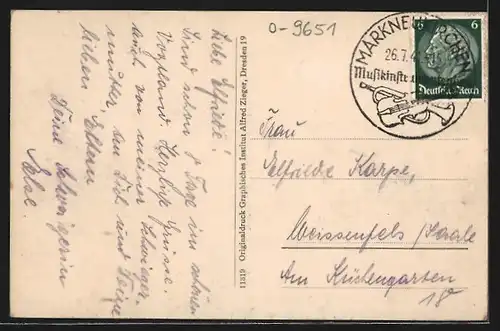 0-9651
MARKNEUKIRCHEN
26.7.4
Musikinstr
6 6
Deutsches Reich
Liebe Elfriede!
Sind schon 8 Tage im schönen
Vogtland. Herzliche Grüsse
auch von meiner Schwieger-
mutter an Dich und Deine
lieben Eltern
Deine Schwägerin
11319 Originaldruck Graphisches Institut Alfred Zieger, Dresden 19
Frau
Elfriede Karpe,
Weissenfels / Saale
Am Küchengarten
18